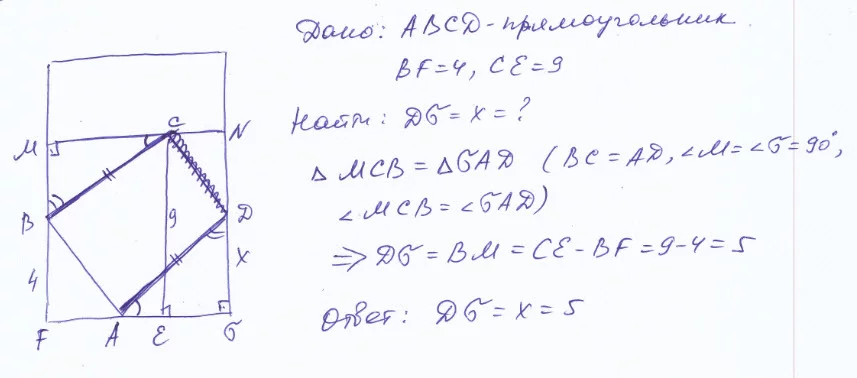 Дано: ABCD - прямоугольник.
BF = 4, CE = 9
Найти: DG = x = ?
△ MCB = △ GAD (BC = AD, ∠M = ∠G = 90°,
∠MCB = ∠GAD)
⇒ DG = BM = CE - BF = 9 - 4 = 5
Ответ: DG = x = 5
C
M
N
B
9
D
4
x
F
A
E
G